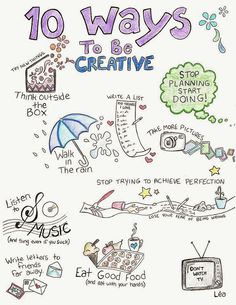 10 WAYS
TO BE
CREATIVE
TRY NEW THINGS!
Think outside
the
BOX
STOP
PLANNING.
START
DOING!
WRITE A LIST
TAKE MORE PICTURES
Walk
in
The rain
STOP TRYING TO ACHIEVE PERFECTION
LOSE YOUR FEAR OF BEING WRONG
Listen
to
MUSIC
(And sing even if you suck)
Write letters to
friends
far away.
Eat Good Food
(and eat with your hands)
DON'T
WATCH
TV
Léa